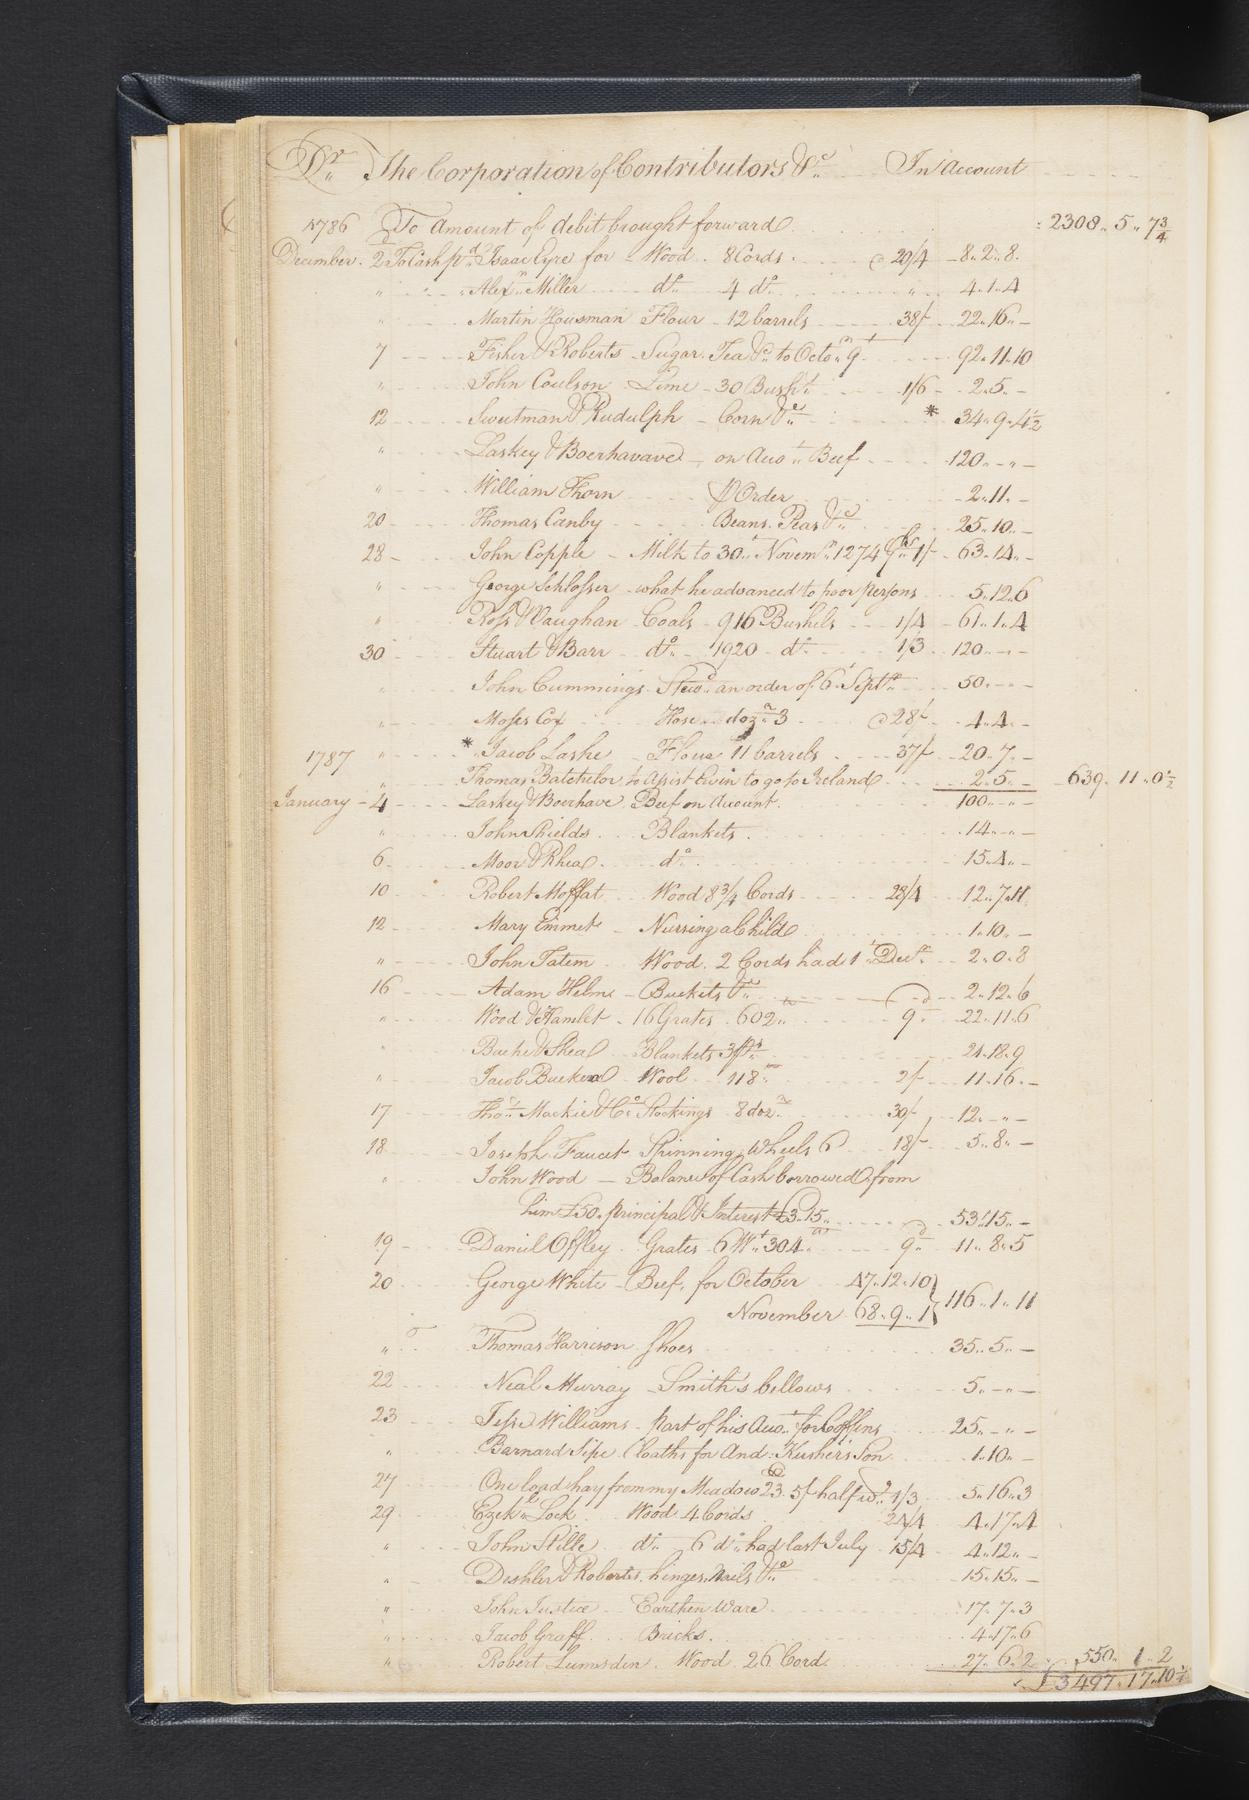 Dr The Corporation of Contributors &c In Account
1786 To amount of debit brought forward : 2308 .. 5 .. 7 3/4
December . 2 To Cash pd Isaac Eyre for Wood . 8 Cords . @ 20/4 8 .. 2 .. 8
" Alexr Miller do 4 do " 4 .. 1 .. 4
" Martin Housman Flour 12 barrels 38/ 22 .. 16 .. —
7 Fisher & Roberts Sugar. Tea &c to Octor 9th 92 .. 11 .. 10
" John Coulson Lime 30 Bushls 1/6 2 .. 5 .. —
12 Sweetman & Rudulph Corn &c * 34 .. 9 .. 4 1/2
" Laskey & Boerhavave on Acot Beef 120 .. " .. —
" William Thorn P Order 2 .. 11 .. —
20 Thomas Canby Beans. Peas &c 25 .. 10 .. —
28 John Copple Milk to 30t Novemr 1274 Qts 1/ 63 .. 14 .. —
" George Schlosser what he advanced to poor persons 5 .. 12 .. 6
" Ross & Vaughan Coals 916 Bushels 1/4 61 .. 1 .. 4
30 Stuart & Barr do 1920 do 1/3 120 .. " .. —
" John Cummings Stewd an order of 6t Septr 50 .. " .. —
" Moses Cox Hose dozn 3 @ 28/ 4 .. 4 .. —
1787 " * Jacob Lashe Flour 11 barrels 37/ 20 .. 7 .. —
" Thomas Batchelor to Assist him to go to Ireland 2 .. 5 .. — 639 .. 11 .. 0 1/2
January 4 Laskey & Boerhave Beef on Account 100 .. " .. —
" John Shields Blankets 14 .. " .. —
6 Moor & Rhea do 15 .. 4 .. —
10 Robert Moffat Wood 8 3/4 Cords 28/4 12 .. 7 .. 11
12 Mary Emmet Nursing a Child 1 .. 10 .. —
" John Tatem Wood . 2 Cords had 1t Decr 2 .. 0 .. 8
16 Adam Helm Buckets &c 2 .. 12 .. 6
" Wood & Hamlet 16 Grates 602 w 9d 22 .. 11 .. 6
" Bache & Shea Blankets 3 ps 24 .. 18 .. 9
" Jacob Buckwa Wool 118 w 2/ 11 .. 16 .. —
17 Thos Mackie & Co Stockings 8 dozn 30/ 12 .. " .. —
18 Joseph Faucet Spinning Wheels 6 18/ 5 .. 8 .. —
" John Wood — Balance of Cash borrowed from
him £50. principal & Interest £3 .. 15 .. 53 .. 15 .. —
19 Daniel Offley Grates 6 Wt 304 w 9d 11 .. 8 .. 5
20 George White Beef, for October 47 .. 12 .. 10
November 68 .. 9 .. 1 } 116 .. 1 .. 11
" Thomas Harrison Shoes 35 .. 5 .. —
22 Neal Murray Smith's bellows 5 .. " .. —
23 Jesse Williams part of his Acot for Coffins 25 .. " .. —
" Barnard Sipe Cloaths for And: Kusher's Son 1 .. 10 .. —
27 One load hay from my Meadow 23 5/ half wd 1/3 5 .. 16 .. 3
29 Ezekl Lock Wood 4 Cords 24/4 4 .. 17 .. 4
" John Stille do 6 do had last July 15/4 4 .. 12 .. —
" Deshler & Roberts hinges. Nails &c 15 .. 15 .. —
" John Justice Earthen Ware 17 .. 7 .. 3
" Jacob Graff Bricks 4 .. 17 .. 6
" Robert Lumsden Wood 26 Cord 27 .. 6 .. 2 550 .. 1 .. 2
£3497 .. 17 .. 10 1/4